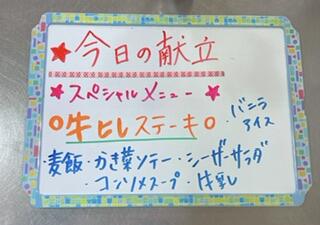 ★今日の献立
★スペシャルメニュー★
○牛ヒレステーキ○
・バニラアイス
麦飯・かき菜ソテー・シーザーサラダ
・コンソメスープ・牛乳